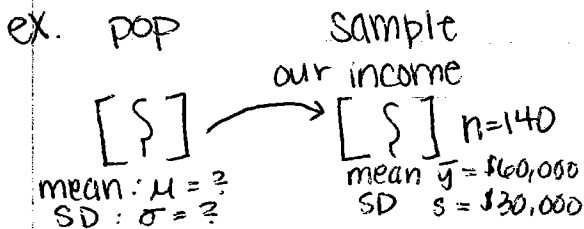 ex. pop sample
our income
[ ʃ ] [ ʃ ] n=140
mean: μ = ? mean ȳ = $60,000
SD : σ = ? SD s = $30,000